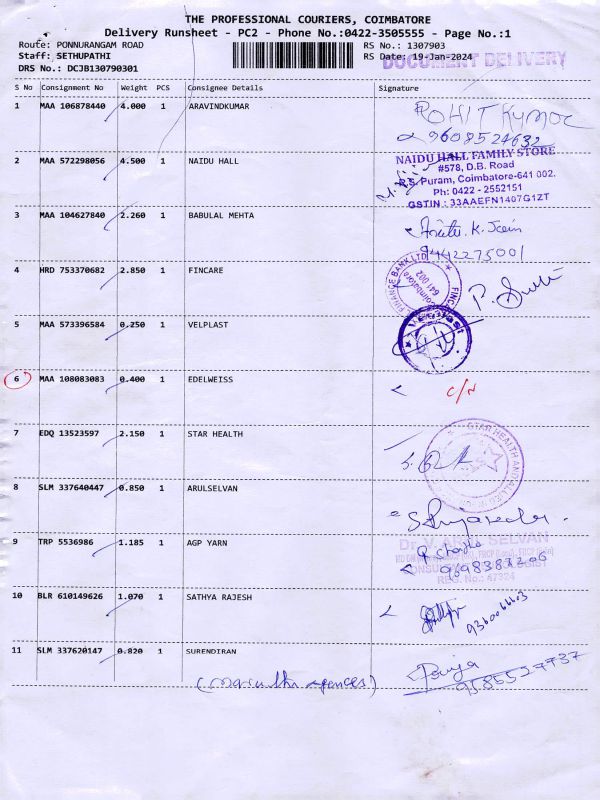 THE PROFESSIONAL COURIERS, COIMBATORE
Delivery Runsheet - PC2 - Phone No.:0422-3505555 - Page No.:1
Route: PONNURANGAM ROAD RS No.: 1307903
Staff: SETHUPATHI RS Date: 19-Jan-2024
DOCUMENT DELIVERY
DRS No.: DCJB130790301
S No Consignment No Weight PCS Consignee Details Signature
1 MAA 106878440 4.000 1 ARAVINDKUMAR
ROHIT Kumar
9608524632
2 MAA 572298056 4.500 1 NAIDU HALL
NAIDU HALL FAMILY STORE
#578, D.B. Road
R.S. Puram, Coimbatore-641 002.
Ph: 0422 - 2552151
GSTIN : 33AAEFN1407G1ZT
3 MAA 104627840 2.260 1 BABULAL MEHTA
K. Jain
9442275001
4 HRD 753370682 2.850 1 FINCARE
FINANCE BANK LTD
Coimbatore
641 002
5 MAA 573396584 0.250 1 VELPLAST
6 MAA 108083083 0.400 1 EDELWEISS
C/N
7 EDQ 13523597 2.150 1 STAR HEALTH
STAR HEALTH AND ALLIED
8 SLM 337640447 0.850 1 ARULSELVAN
Dr. V. ARUL SELVAN
REG. No.: 47324
9 TRP 5536986 1.185 1 AGP YARN
10 BLR 610149626 1.070 1 SATHYA RAJESH
11 SLM 337620147 0.820 1 SURENDIRAN
9585527737